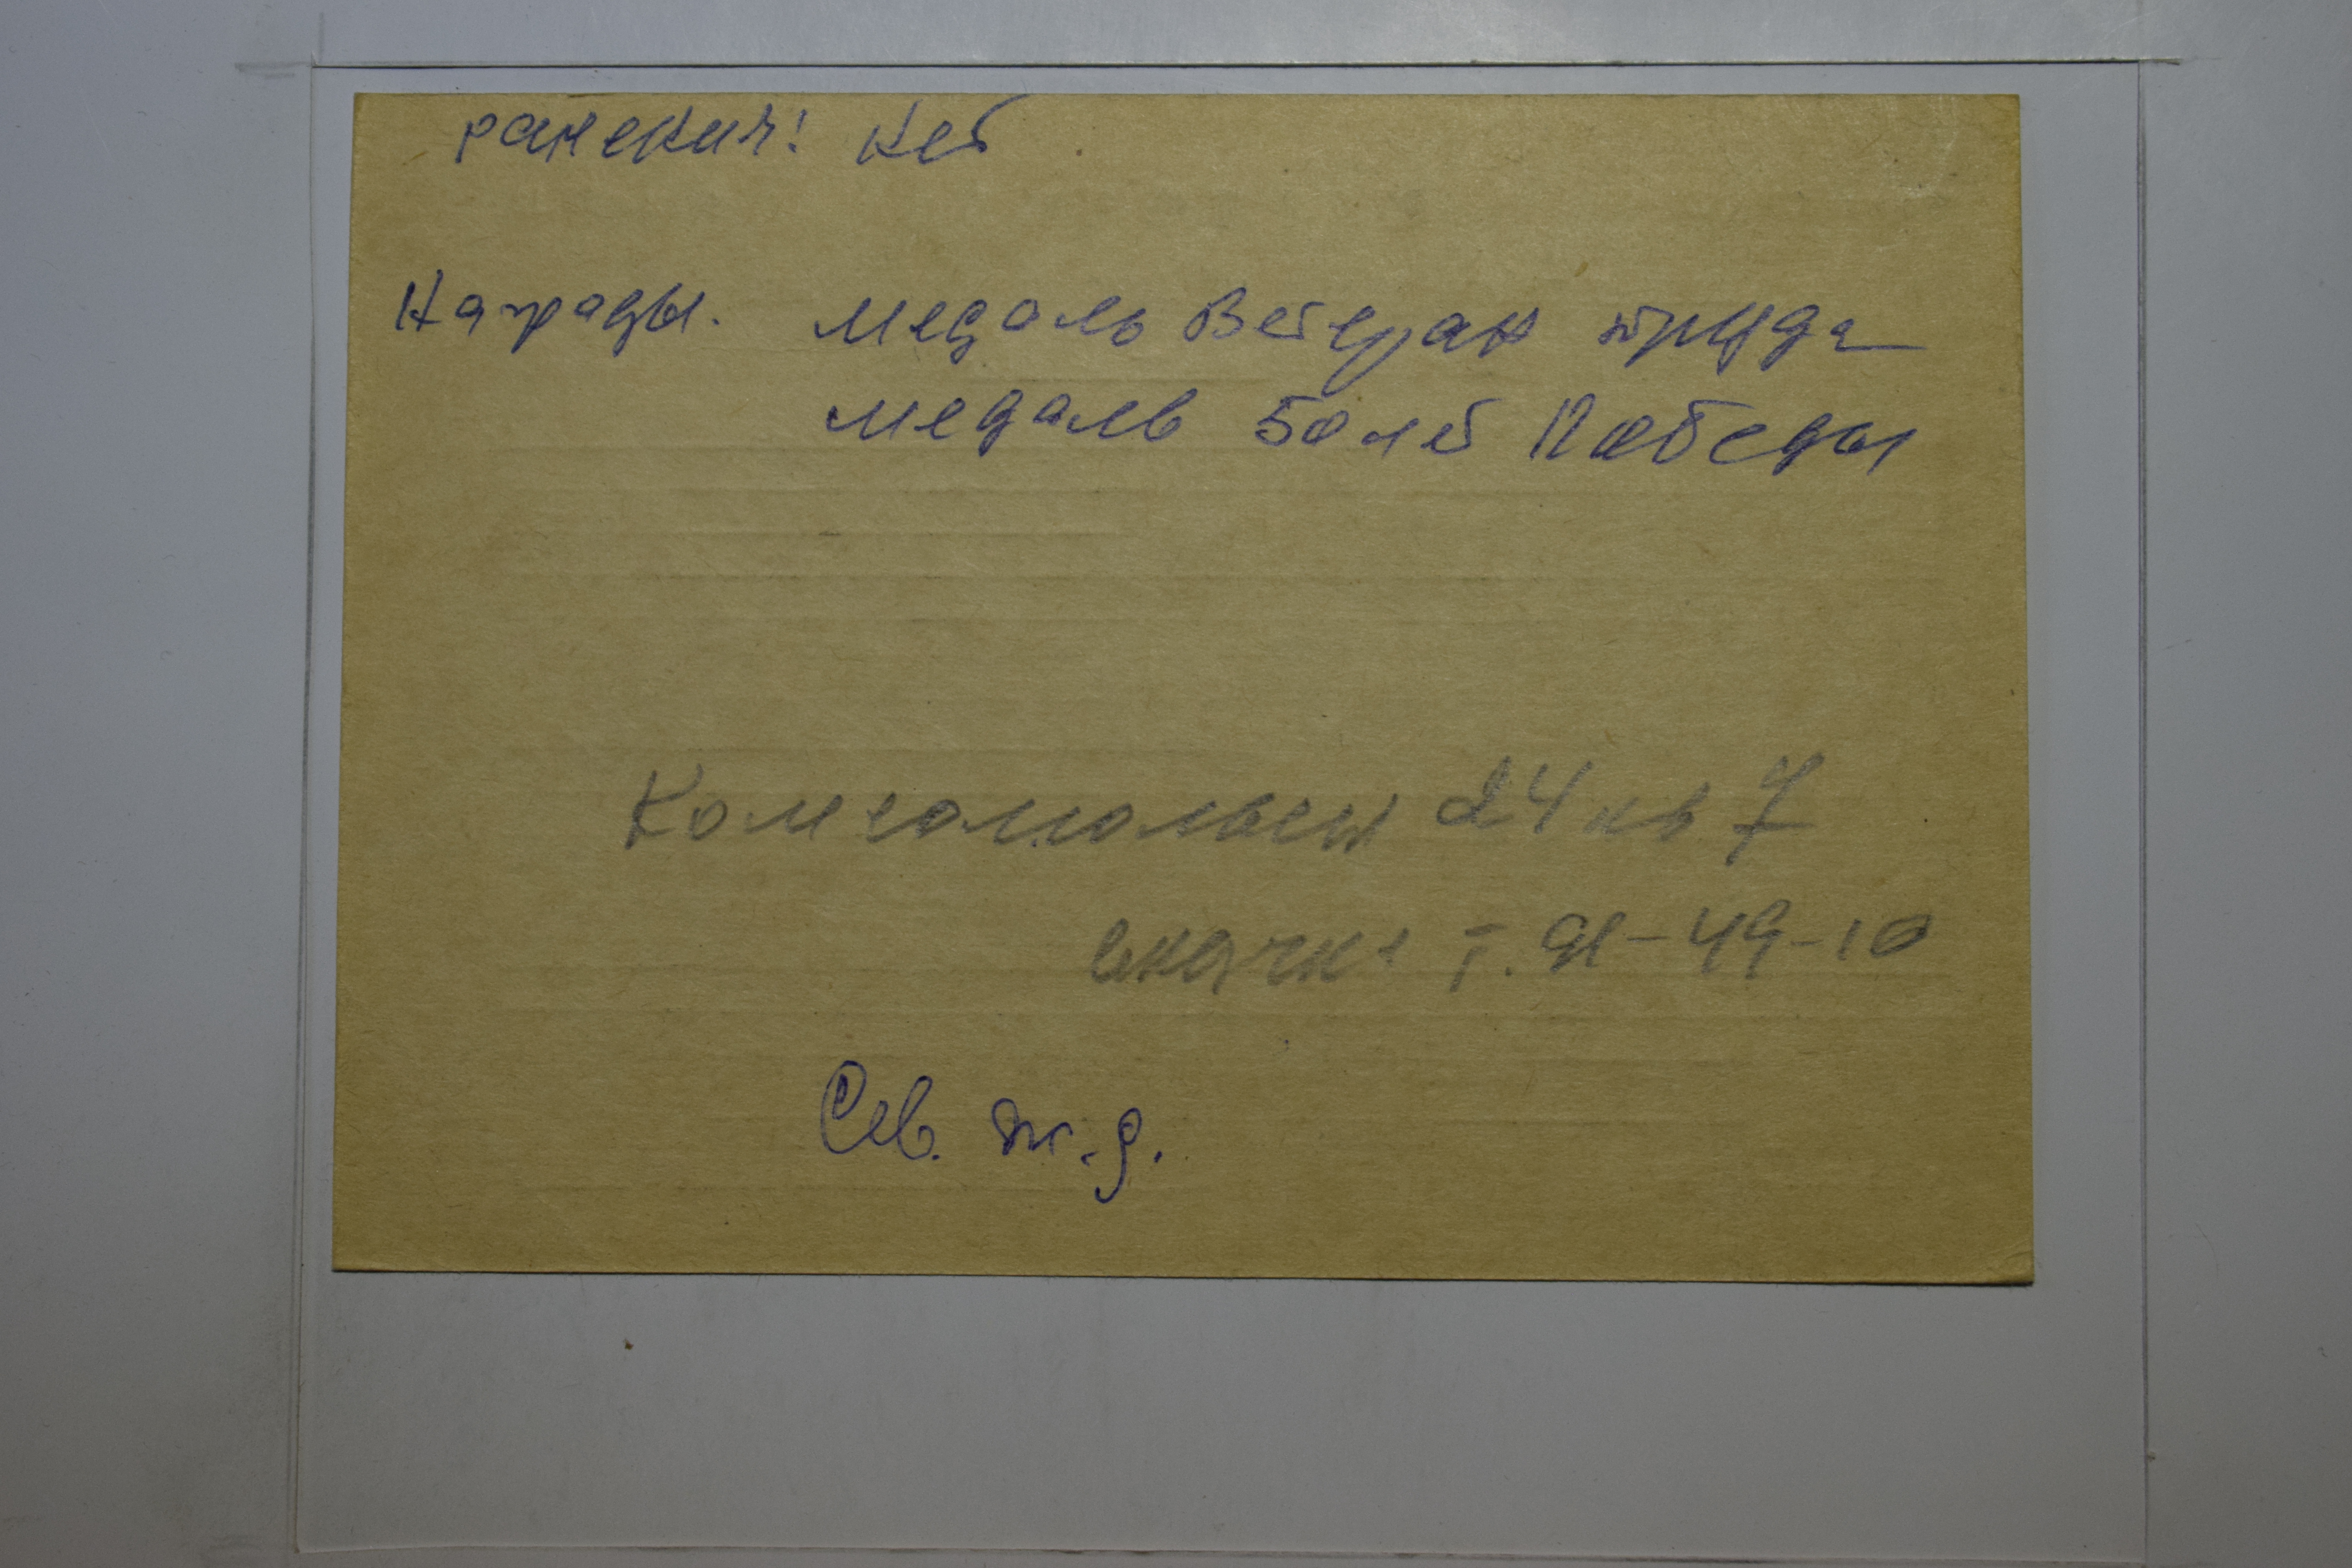 ранения: нет
Награды. медаль Ветеран труда
медаль 50 лет Победы
Комсомольск 24 кв 7
т. 91-49-10
Сев. ж.д.